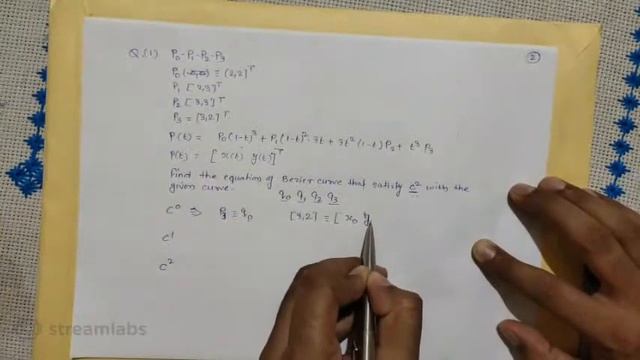 ②
Q.(1) P₀-P₁-P₂-P₃
P₀ ≡ (2,2]ᵀ
P₁ [2,3]ᵀ
P₂ [3,3]ᵀ
P₃ = [3,2]ᵀ
P(t) = P₀(1-t)³ + P₁(1-t)².3t + 3t²(1-t)P₂ + t³P₃
P(t) = [x(t) y(t)]ᵀ
Find the equation of Bezier curve that satisfy c² with the
given curve. q₀ q₁ q₂ q₃
C⁰ ⇒ P₃ ≡ q₀ [3,2] ≡ [x₀ y
C¹
C²
streamlabs